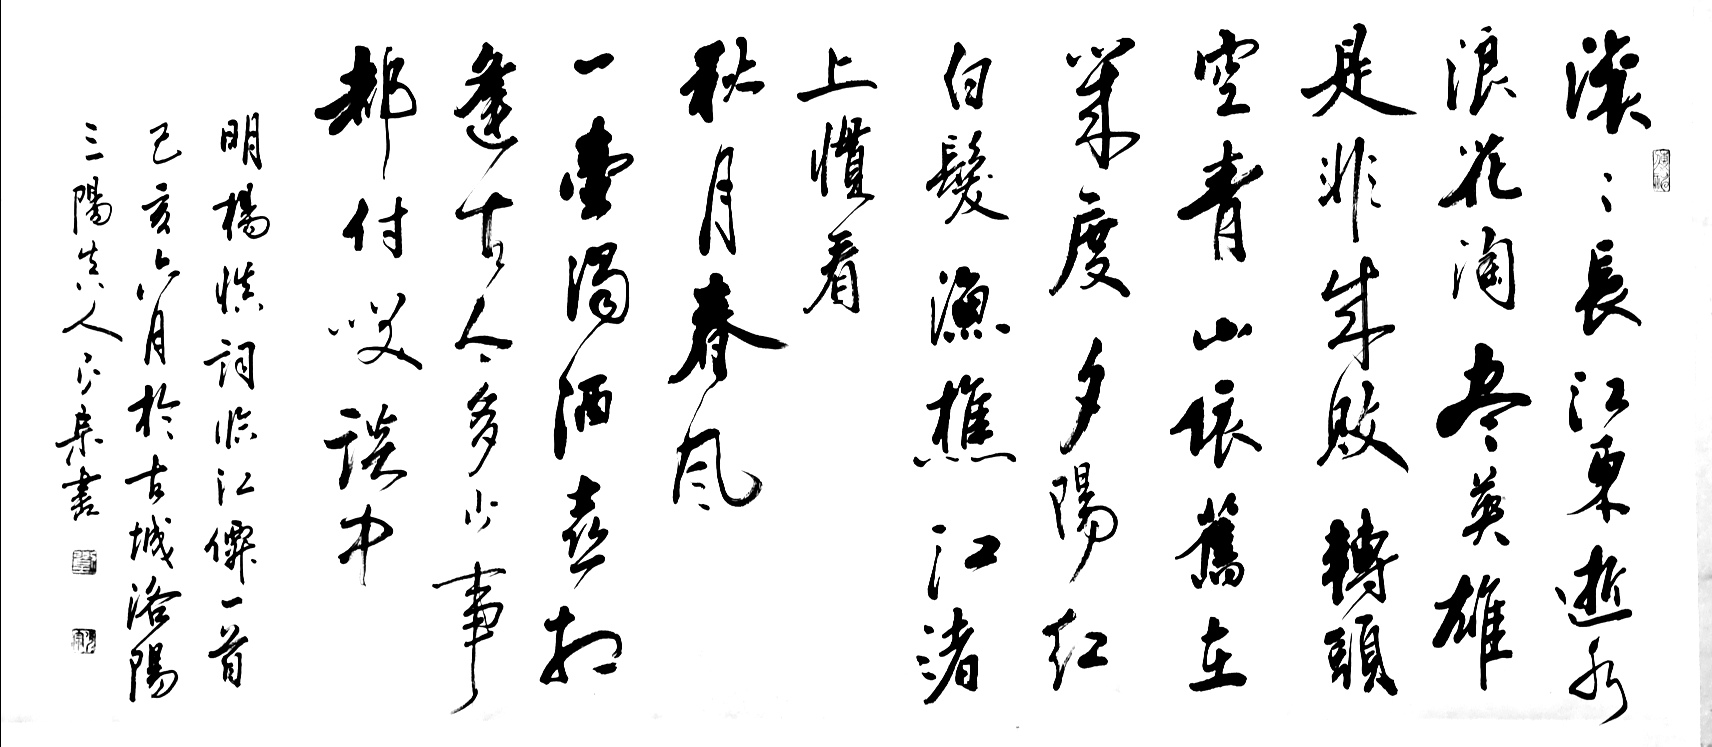 滚〻長江東逝水
浪花淘尽英雄
是非成敗轉頭
空青山依舊在
幾度夕陽紅
白髮漁樵江渚
上慣看
秋月春風
一壺濁酒喜相
逢古今多少事
都付笑談中
明楊慎詞臨江仙一首
己亥六月於古城洛陽
三陽真人 書